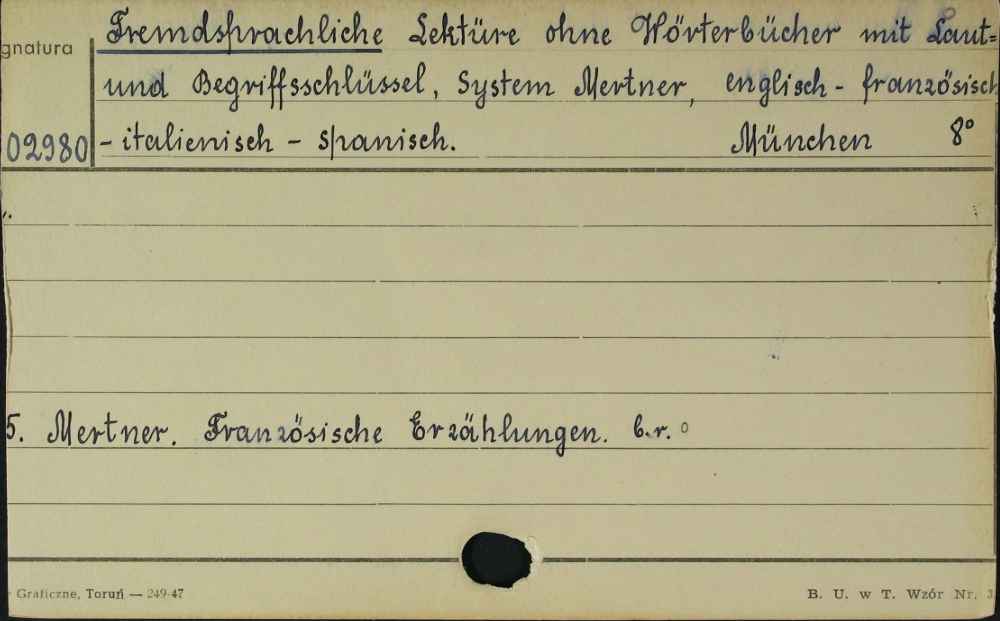 Fremdsprachliche Lektüre ohne Wörterbücher mit Laut=
gnatura
und Begriffsschlüssel, System Mertner, englisch - französisch
02980 - italienisch - spanisch. München 8°
5. Mertner. Französische Erzählungen. b.r.
Graficzne, Toruń — 249-47 B. U. w T. Wzór Nr. 3